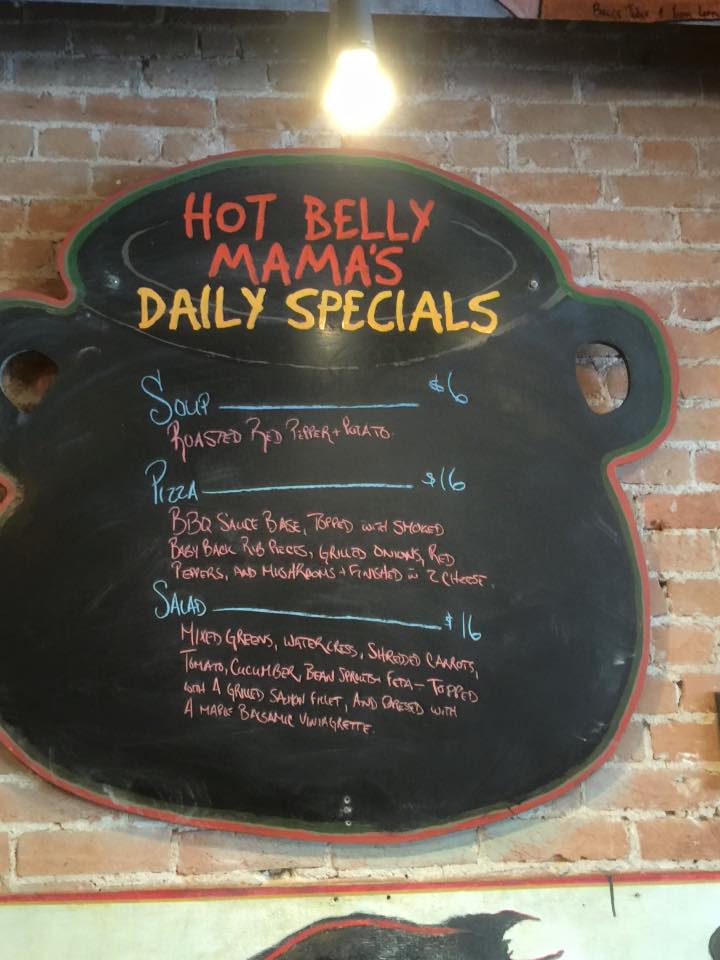 HOT BELLY
MAMA'S
DAILY SPECIALS
SOUP $6
ROASTED RED PEPPER + POTATO.
PIZZA $16
BBQ SAUCE BASE, TOPPED WITH SMOKED
BABY BACK RIB PIECES, GRILLED ONIONS, RED
PEPPERS, AND MUSHROOMS + FINISHED W 2 CHEESE.
SALAD $16
MIXED GREENS, WATERCRESS, SHREDDED CARROTS,
TOMATO, CUCUMBER, BEAN SPROUTS + FETA - TOPPED
WITH A GRILLED SALMON FILLET, AND DRESSED WITH
A MAPLE BALSAMIC VINIAGRETTE.